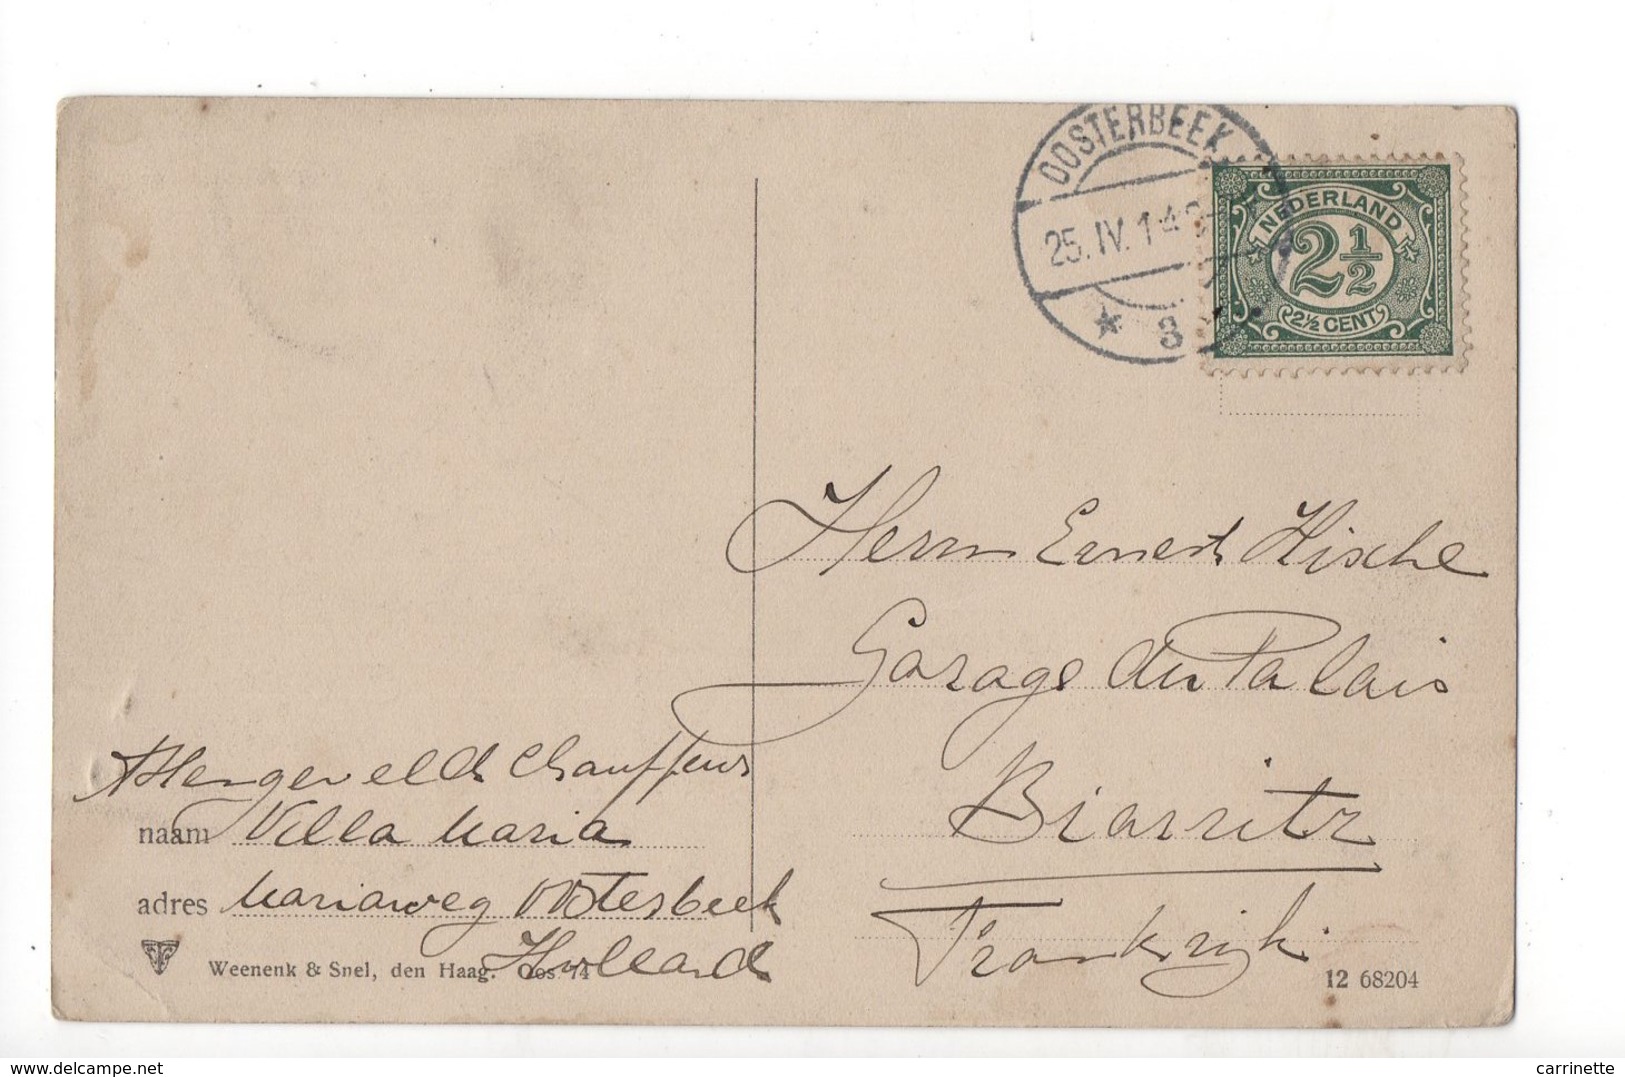 OOSTERBEEK
25.IV.14
* 3
NEDERLAND
2½
2½ CENT
Herrn Ernest Hische
Garage du Palais
Biarritz
Frankrijk
Hengeveldt Chauffeur
naam Villa Maria
adres Mariaweg Oosterbeek
Holland
Weenenk & Snel, den Haag. Oos 74
12 68204
delcampe.net
carrinette